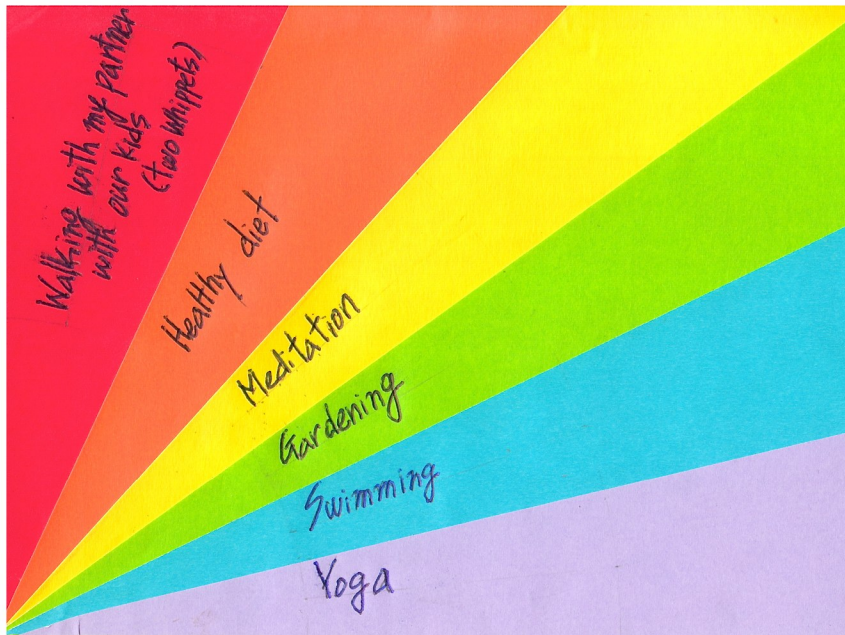 Walking with my partner
with our kids
(two whippets)
Healthy diet
Meditation
Gardening
Swimming
Yoga